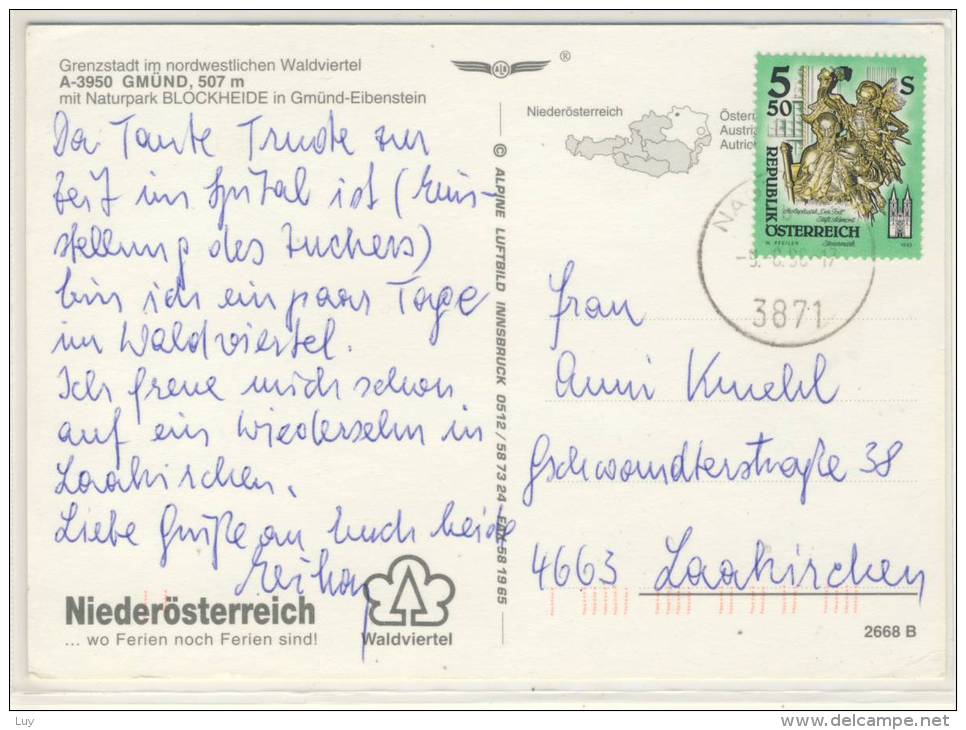 Grenzstadt im nordwestlichen Waldviertel
A-3950 GMÜND, 507 m
mit Naturpark BLOCKHEIDE in Gmünd-Eibenstein
Da Tante Trude zur
Zeit im Spital ist (Ein-
stellung des Zuckers)
bin ich ein paar Tage
im Waldviertel.
Ich freue mich schon
auf ein Wiedersehn in
Laakirchen.
Liebe Grüße an Euch beide
Niederösterreich
... wo Ferien noch Ferien sind!
Waldviertel
© ALPINE LUFTBILD INNSBRUCK 0512 / 58 73 24 - FAX 58 19 65
ALB
®
Niederösterreich
Österr
Austria
Autric
5 50 S
REPUBLIK
ÖSTERREICH
3871
Frau
Anni Kmehl
Gschwandterstraße 38
4663 Laakirchen
2668 B
Luy
www.delcampe.net